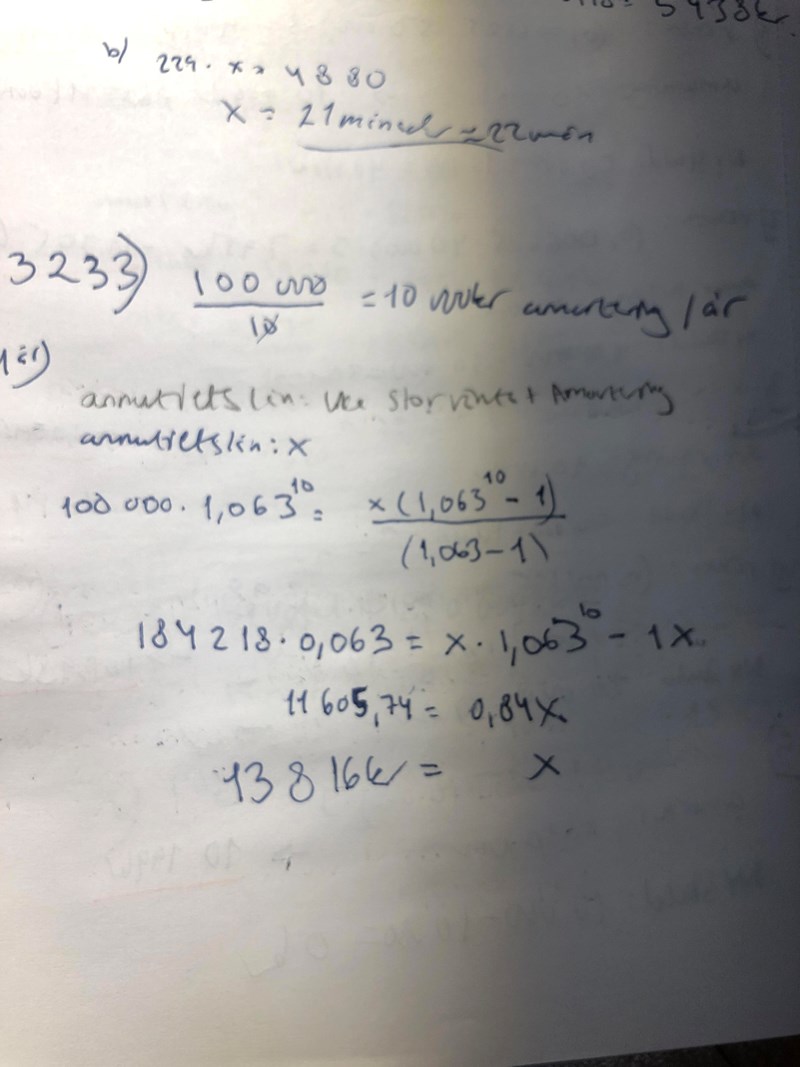 5438kr
b) 229 · x = 4880
x = 21 månader ≈ 22 mån
3233) 100 000 / 10 = 10 000kr amortering / år
annuitetslån: lika stor ränta + Amortering
annuitetslån: x
100 000 · 1,063^10 = x (1,063^10 - 1) / (1,063 - 1)
184 218 · 0,063 = x · 1,063^10 - 1x
11 605,74 = 0,84x
13 816kr = x